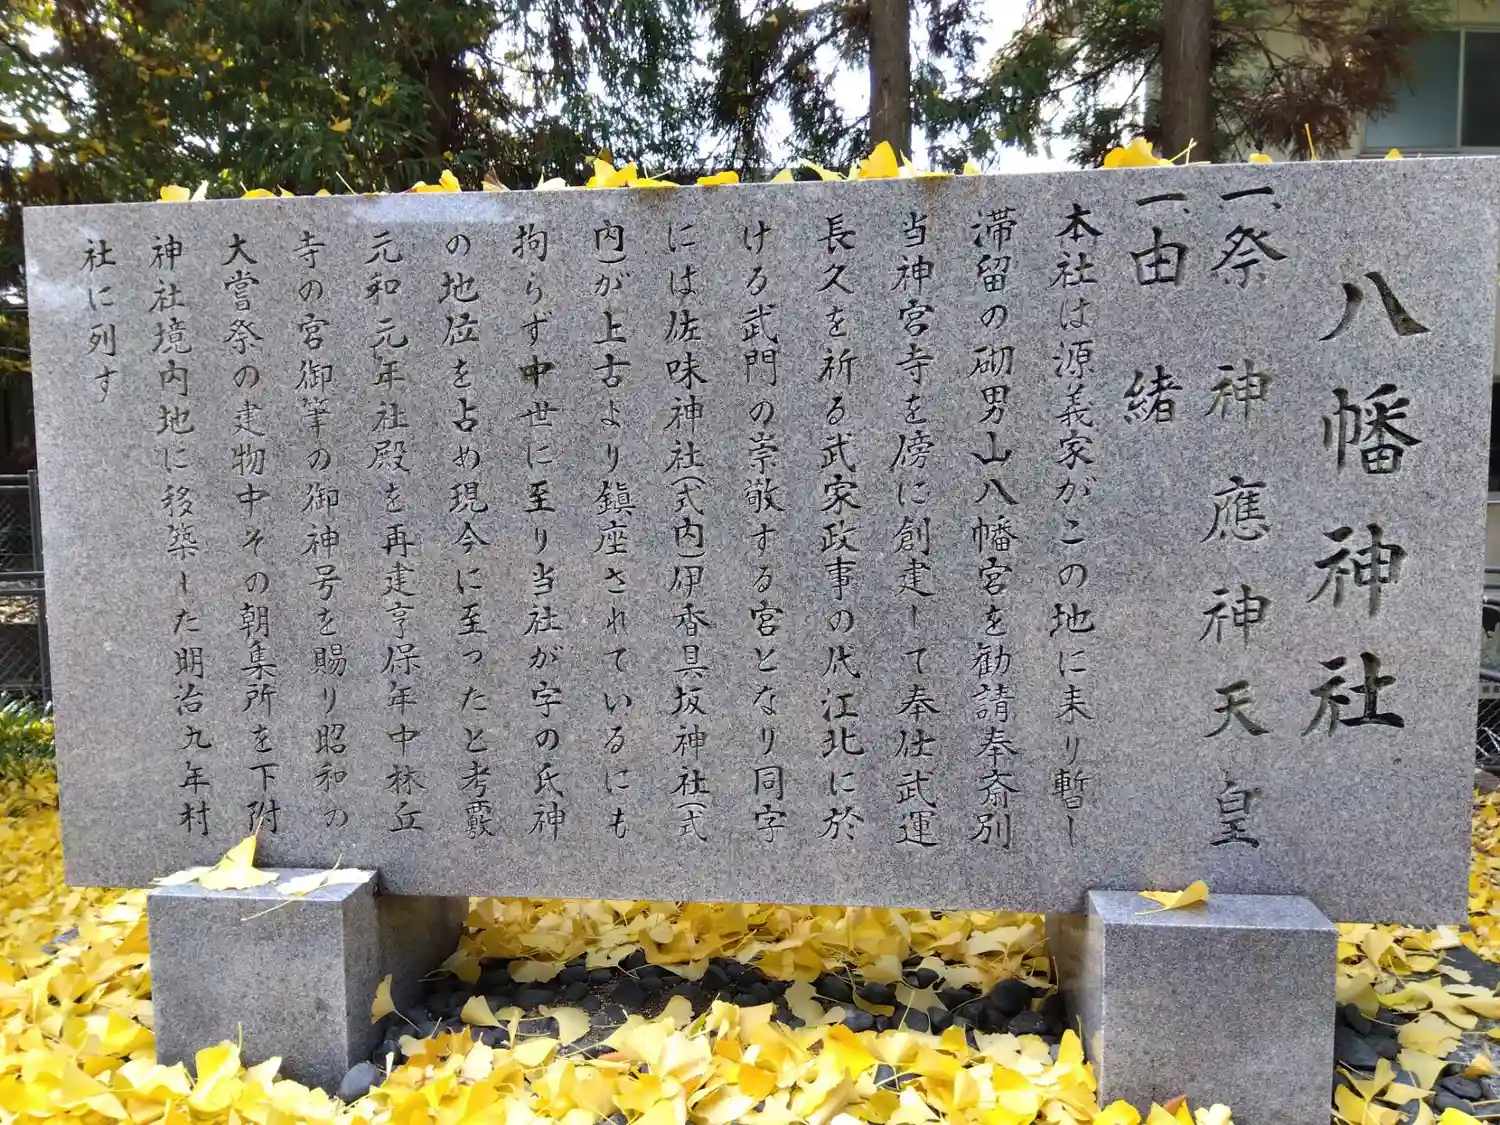 八幡神社
一、祭神 應神天皇
一、由緒
本社は源義家がこの地に来り暫し
滞留の砌男山八幡宮を勧請奉斎別
当神宮寺を傍に創建して奉仕武運
長久を祈る武家政事の代江北に於
ける武門の崇敬する宮となり同字
には佐味神社(式内)伊香具坂神社(式
内)が上古より鎮座されているにも
拘らず中世に至り当社が字の氏神
の地位を占め現今に至ったと考覈
元和元年社殿を再建享保年中林丘
寺の宮御筆の御神号を賜り昭和の
大嘗祭の建物中その朝集所を下附
神社境内地に移築した明治九年村
社に列す